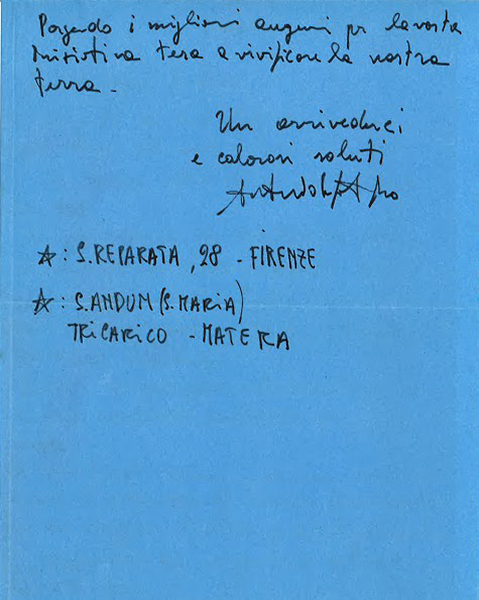 Porgendo i migliori auguri per la vostra
iniziativa tesa a vivificare la nostra
terra.
Un arrivederci
e calorosi saluti
☆: S. REPARATA, 28 - FIRENZE
☆: S. ANDUM (S. MARIA)
TRICARICO - MATERA